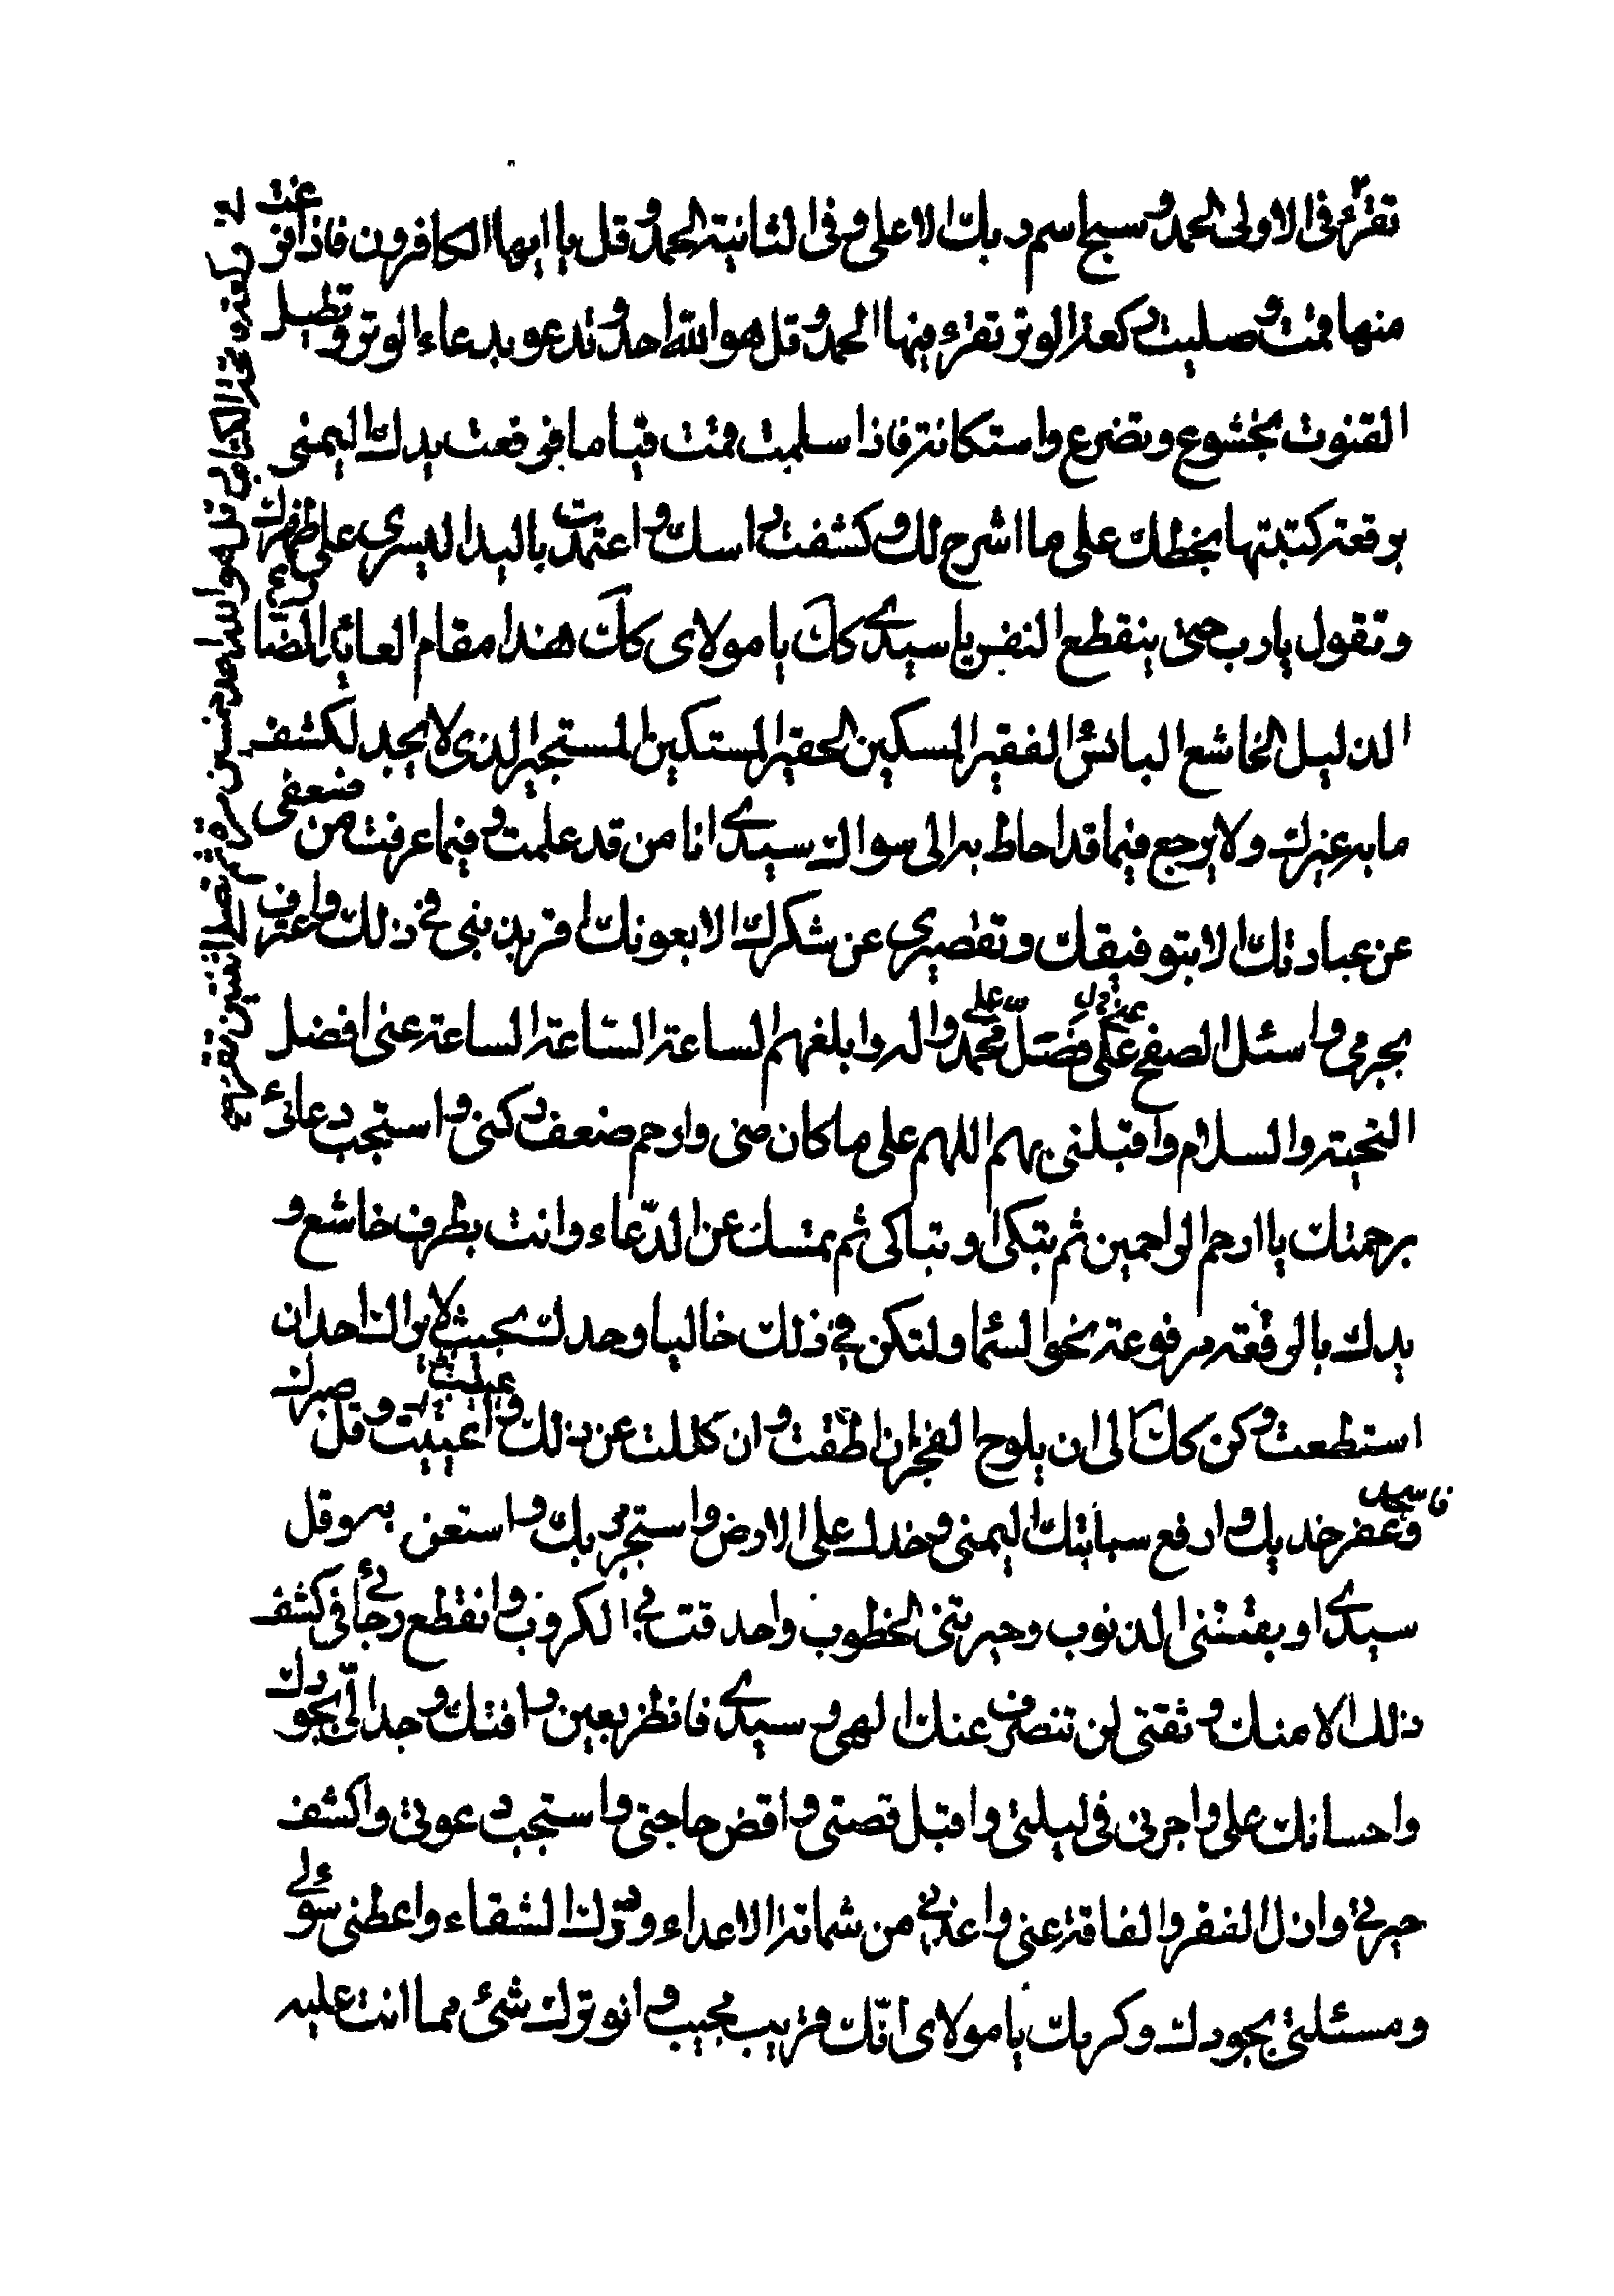 تقرء في الاولى الحمد وسبح اسم ربك الاعلى وفي الثانية الحمد وقل يا ايها الكافرون فاذا فرغت
منها قمت وصليت ركعة الوتر تقرء فيها الحمد وقل هو الله احد وتدعو بدعاء الوتر وتطيل
القنوت بخشوع وتضرع واستكانة فاذا سلمت قمت قياما فرفعت يدك اليمنى
برقعة كتبتها بخطك على ما اشرح لك وكشفت راسك واعتمدت باليد اليسرى على ظهرك
وتقول يا رب حتى ينقطع النفس يا سيدي كك يا مولاى كك هذا مقام العائذ الضارع
الذليل الخاشع البائس الفقير المسكين الحقير المستكين المستجير الذى لا يجد لكشف
ما به غيرك ولا يرجع فيما قد احاط به الى سواك سيدي انا من قد علمت وفيما عرفت من ضعفى
عن عبادتك الا بتوفيقك وتقصيري عن شكرك الا بعونك اقر بذنبى في ذلك واعترف
بجرمى واسئل الصفح عنى فصل على محمد واله وابلغهم الساعة الساعة الساعة عنى افضل
التحية والسلام واقبلنى بهم اللهم على ما كان منى وارحم ضعف ركنى واستجب دعائى
برحمتك يا ارحم الراحمين ثم تبكى او تباكى ثم تمسك عن الدعاء وانت بطرف خاشع و
يدك بالرقعة مرفوعة نحو السما ولتكن في ذلك خاليا وحدك بحيث لا يراك احد ان
استطعت وكن كك الى ان يلوح الفجر ان اطقت وان كللت عن ذلك واعييت وقل صبرك
فاسجد وعفر خديك وارفع سبابتك اليمنى وخدك على الارض واستجر بربك واستعن به وقل
سيدي اوبقتنى الذنوب وحيرتنى الخطوب واحدقت بى الكروب وانقطع رجائى في كشف
ذلك الا منك وثقتى لن تنصرف عنك الهى وسيدي فانظر بعين رافتك وجد الى بجودك
واحسانك على واجرنى فى ليلتى واقبل قصتى واقض حاجتى واستجب دعوتى واكشف
حيرتي وازل الفقر والفاقة عنى واعذني من شماتة الاعداء ودرك الشقاء واعطنى سؤلي
ومسئلتى بجودك وكرمك يا مولاى انك قريب مجيب وانو ترك شئ مما انت عليه